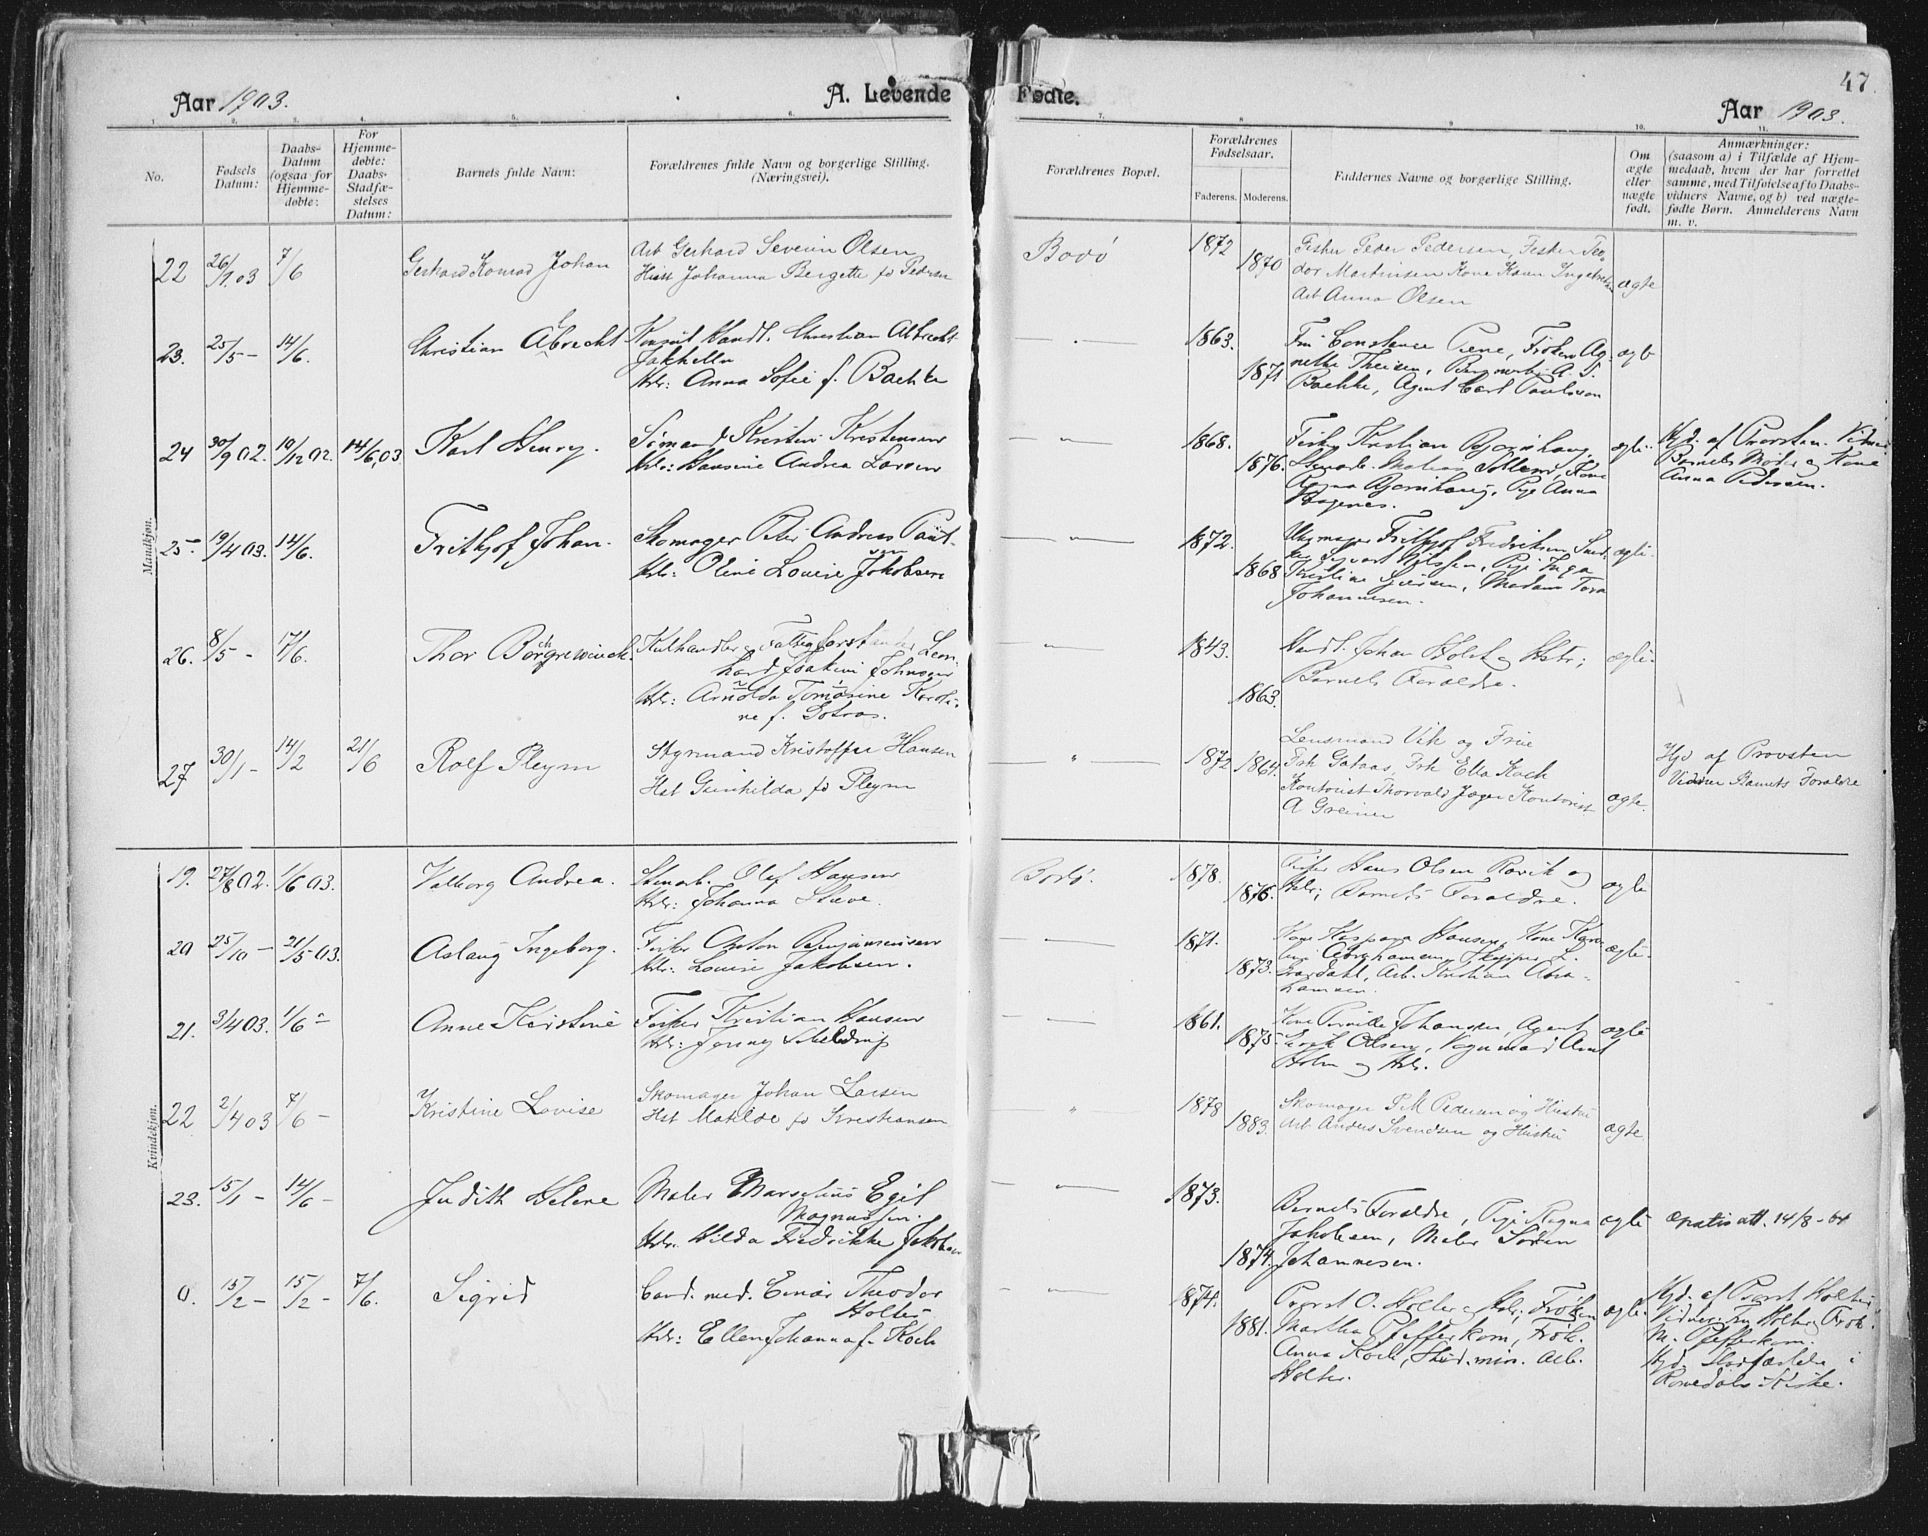 47
Aar 1903.
A. Levende Fødte.
Aar 1903.
1. 2. 3. 4. 5. 6. 7. 8. 9. 10. 11.
No.
Fødsels Datum:
Daabs-Datum (ogsaa for Hjemmedøbte:
For Hjemmedøbte: Daabs-Stadfæstelses Datum:
Barnets fulde Navn:
Forældrenes fulde Navn og borgerlige Stilling.
(Næringsvei).
Forældrenes Bopæl.
Forældrenes Fødselsaar.
Faderens. Moderens.
Faddernes Navne og borgerlige Stilling.
Om ægte eller uægte født.
Anmærkninger:
(saasom a) i Tilfælde af Hjem-
medaab, hvem der har forrettet
samme, med Tilføielse af to Daabs-
vidners Navne, og b) ved uægte-
fødte Børn. Anmelderens Navn
m. v.
Mandkjøn.
22 26/1.03 7/6 Gerhard Konrad Johan
Arb Gerhard Severin Olsen
Hust Johanna Bergette fd Pedersen
Bodø 1872 1870
Fisker Peder Pedersen, Fisker Teo-
dor Martinsen Kone Karen Ingebretsen
Arb Anna Olsen
ægte
23. 25/5 - 14/6. Christian Albrecht
Konsul Handl. Christian Albrecht
Jakhelln
Hstr: Anna Sofie f. Baekke
1863. 1871
Fru Constance Pene, Frøken Ag-
nethe Theisen, A. S.
Baekke, Agent Carl Paulsson
ægte
24 30/9 02. 19/12 02. 14/6,03 Karl Henry.
Sømand Kristen Kristensen
Hstr: Hansine Andrea Larsen
1868. 1876.
Fisker Kristian Bjørnhaug,
Stenarb. Mathias Kone
Ragna Bjørnhaug, Pige Anna
Hagenes.
ægte
Hjd. af Provsten. Vidner
Barnets Moder og Kone
Anna Pedersen.
25 19/4 03. 14/6. Frithjof Johan.
Skomager Peter Andreas Paul-
sen
Hstr: Oline Lovise Jakobsen
1872. 1868
Uhrmager Fritjof Fredriksen, Sned-
ker Sigvart Nilssen, Pige Inga
Kristine Iversen, Madam Tora
Johannesen.
ægte
26. 8/5 - 17/6. Thor Borchgrewinck.
Kulhandler, Fattigforstander Leon-
hard Joakim Johnsen
Hstr: Arnolda Tomasine Karoli-
ne f. Gotaas.
1843. 1863.
Handl. Johan Holst og Hstr;
Barnets Foraldre.
ægte
27 30/1 - 14/2 21/6 Rolf Pleym
Styrmand Kristoffer Hansen
Hst Gunhilda fd Pleym
1872 1864.
Lensmand Vik og Frue
Frk Gotaas, Frk Ella Koch
Kontorist Thorvald Jæger Kontorist
A Greiner
ægte.
Hjd af Provsten
Vidner Barnets Foraldre
Kvindekjøn.
19. 27/8 02. 1/6 03. Valborg Andrea.
Stenarb. Olaf Hansen
Hstr: Johanna Stueve.
Bodø. 1878. 1876.
Fisker Hans Olsen Røvik og
Hstr; Barnets Foraldre.
ægte
20 25/10 - 21/5 03. Aslaug Ingeborg.
Fisker Anton Benjaminsen
Hstr: Lovise Jakobsen.
1871. 1873.
Kone Kaspara Hansen, Kone Karo-
line Abrahamsen, Skipper L.
Svardahl, Arb. Kristian Abra-
hamsen.
ægte
21. 3/4 03. 1/6 - Anne Kristine
Fisker Kristian Hansen
Hstr: Jenny Skeldrup
1861. 1875
Kone Pernille Johansen, Agent
Olsen, Vognmand Arnt
Holm og Hstr.
ægte
22 2/4 03 7/6 - Kristine Lovise
Skomager Johan Larsen
Hst Matilde fd Kristiansen
1878 1883.
Skomager P.M. Pedersen og Hustru
Arb Anders Svendsen og Hustru
ægte
23. 15/1 - 14/6 - Judith Helene
Maler Marselius Egil
Magnussen.
Hstr. Hilda Fredrikke Jakobsen
1873. 1874.
Barnets Foraldre, Pige Ragna
Jakobsen, Maler Søren
Johannesen.
ægte
gratis att. 14/8 - 64
0. 15/2 - 15/2 - 7/6. Sigrid
Cand. med. Einar Theodor
Holter
Hstr: Ellen Johanna f. Koch
1874. 1881.
Provst O. Holter og Hstr; Frøken
Martha Pfefferkorn, Frøk.
Anna Koch, Stud. min. Alb.
Holter.
ægte
Hjd. af Provst Holter.
Vidner: Fru Holter, Frøk.
M. Pfefferkorn.
Hjd. Stadfæstelse i
Romedals Kirke.